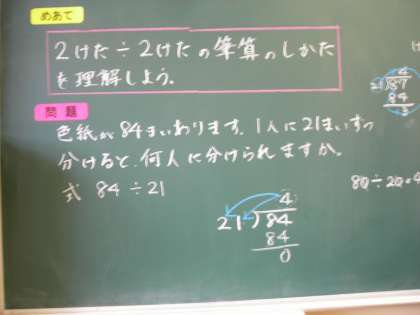 めあて
2けた÷2けたの筆算のしかた
を理解しよう。
問題
色紙が84まいあります。1人に21まいずつ
分けると、何人に分けられますか。
式 84÷21
4
21)84
84
0
4
21)87
84
3
80÷20=4